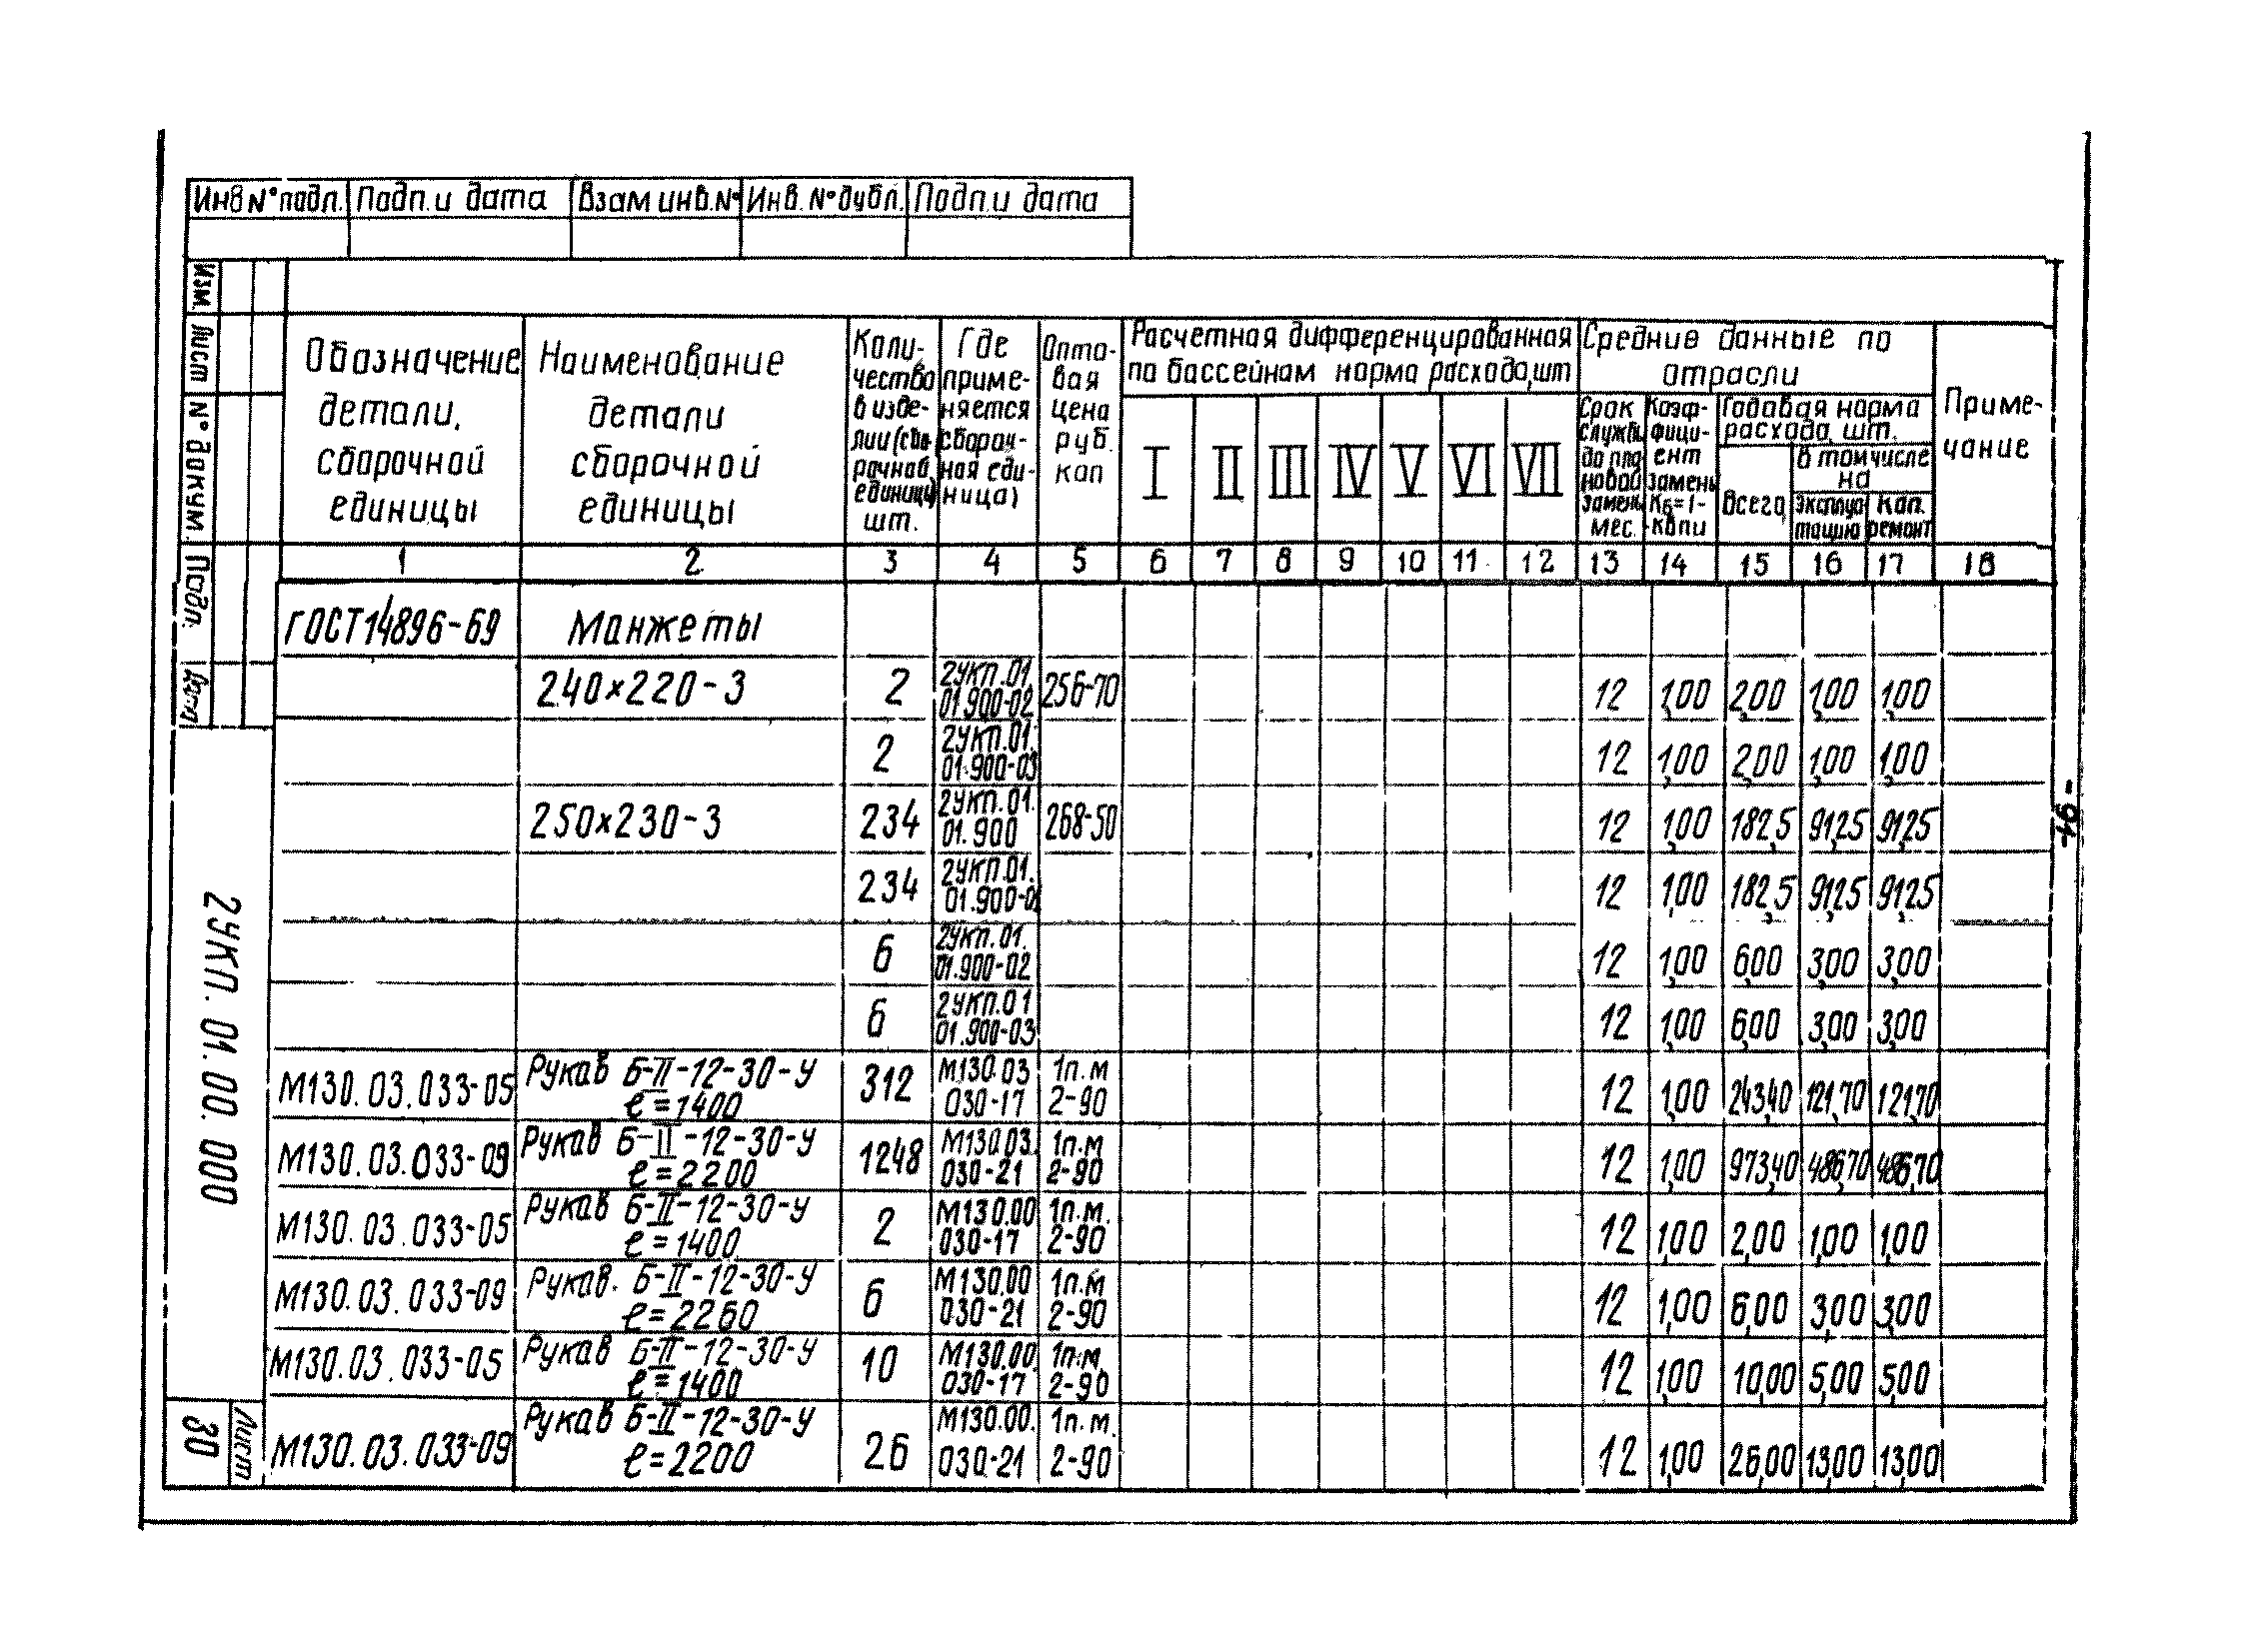 Инв N° подл. Подп. и дата Взам инв. N° Инв. N° дубл. Подп. и дата
Изм. Лист N° докум. Подп.
2УКП. 01. 00. 000
Лист
30
Обозначение детали, сборочной единицы
Наименование детали сборочной единицы
Количество в изделии (сборочной единицы) шт.
Где применяется сборочная единица)
Оптовая цена руб. коп
Расчетная дифференцированная по бассейнам норма расхода, шт
I II III IV V VI VII
Средние данные по отрасли
Срок службы до плановой замены мес.
Коэффициент замены Kб=1-
Годовая норма расхода, шт.
Всего
в том числе на
эксплуатацию
кап. ремонт
Примечание
1 2 3 4 5 6 7 8 9 10 11 12 13 14 15 16 17 18
ГОСТ 14896-69 Манжеты
240×220-3 2 2УКП.01. 01.900-02 256-70 12 1,00 2,00 1,00 1,00
2 2УКП.01. 01.900-03 12 1,00 2,00 1,00 1,00
250×230-3 234 2УКП.01. 01.900 268-50 12 1,00 182,5 91,25 91,25
234 2УКП.01. 12 1,00 182,5 91,25 91,25
6 2УКП.01. 01.900-02 12 1,00 6,00 3,00 3,00
6 2УКП.01 01.900-03 12 1,00 6,00 3,00 3,00
М130.03.033-05 Рукав Б-II-12-30-У ℓ=1400 312 М130.03 030-17 1п.м 2-90 12 1,00 243,40 121,70 121,70
М130.03.033-09 Рукав Б-II-12-30-У ℓ=2200 1248 М130.03. 030-21 1п.м 2-90 12 1,00 973,40 486,70 486,70
М130.03.033-05 Рукав Б-II-12-30-У ℓ=1400 2 М130.00 030-17 1п.м. 2-90 12 1,00 2,00 1,00 1,00
М130.03.033-09 Рукав. Б-II-12-30-У ℓ=2260 6 М130.00 030-21 1п.м 2-90 12 1,00 6,00 3,00 3,00
М130.03.033-05 Рукав Б-II-12-30-У ℓ=1400 10 М130.00. 030-17 1п.м. 2-90 12 1,00 10,00 5,00 5,00
М130.03.033-09 Рукав Б-II-12-30-У ℓ=2200 26 М130.00. 030-21 1п.м. 2-90 12 1,00 26,00 13,00 13,00